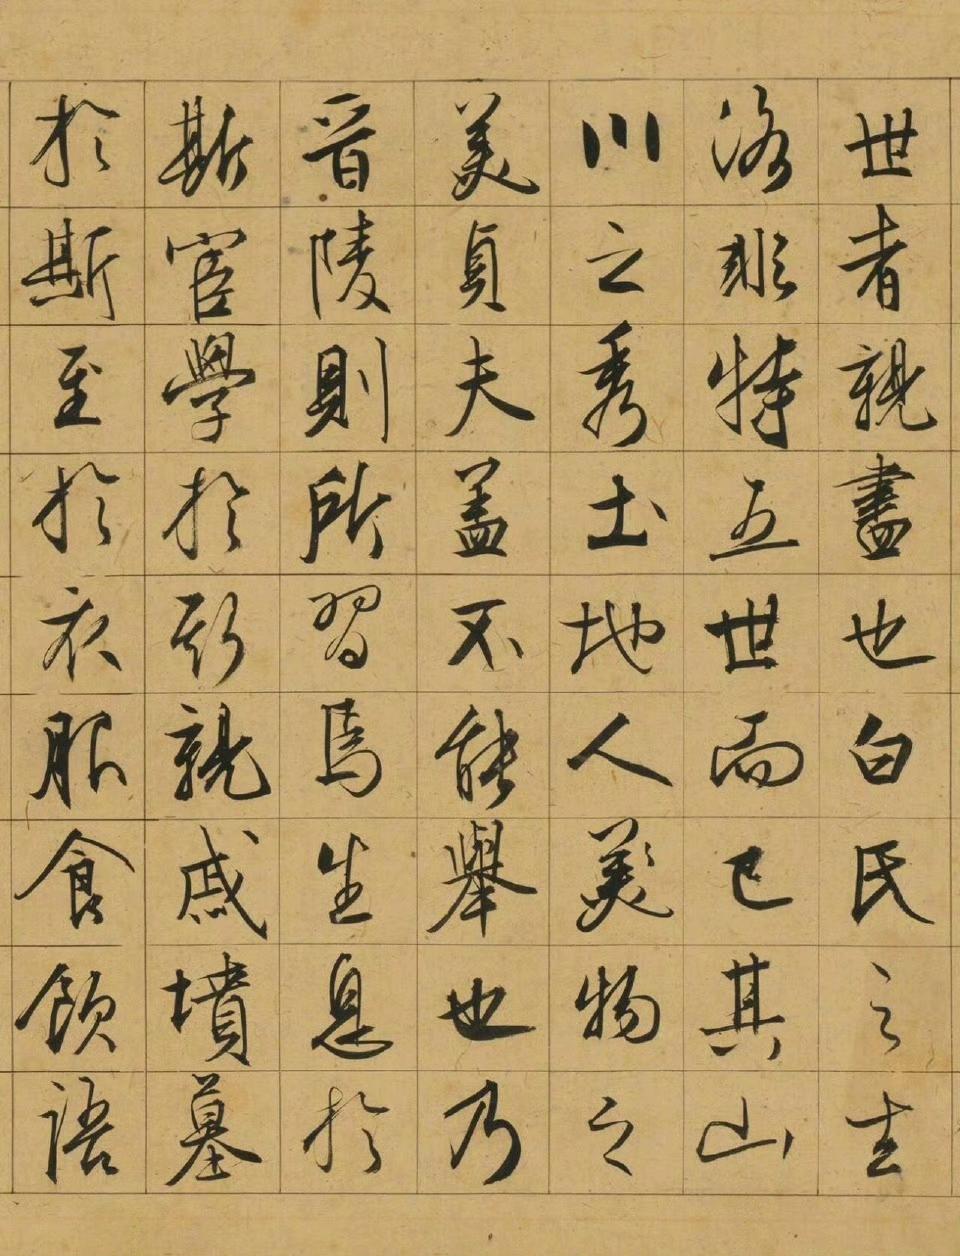 世者親盡也白氏之去
洛非特五世而已其山
川之秀土地人美物之
美貞夫盖不能舉也乃
晉陵則所習焉生息於
斯宦學於斯親戚墳墓
於斯至於衣服食飲語